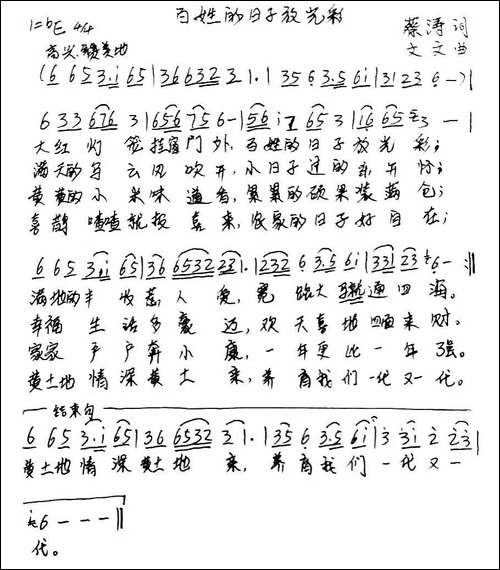 百姓的日子放光彩
1=bE 4/4
蔡涛 词
高兴 赞美地
文文 曲
(6 6 5 3·i 65 | 36 6632 3 1· | 35 6 3·5 6i | 3123 6 - ) |
6 33 676 3 | 656 756 - | 56 i 7 65 3 | i6 65 3 - |
大红 灯 笼 挂窗门 外, 百姓的 日子 放 光 彩;
满天的 云风 吹 开, 小日子 过的 开 怀;
黄黄的 小 米味 道香, 累累的 硕果装满 包;
喜鹊 喳喳就报 喜 来, 农家的 日子好 自 在;
6 6 5 3·i 65 | 36 6532 231· | 232 6 3·5 6i | 331 23 6 - :||
满地的丰 收 人 爱, 宽 大 通 四 海。
幸福 生活多豪 迈, 欢 天喜 地 四面来 财。
家家 户户奔小 康, 一 年更比 一 年 强。
黄土地 情 深黄土 亲, 养 育我 们 一代 又 一 代。
结束句
6 65 3·i 65 | 36 6532 3 1· | 35 6 3·5 6i | 3 3i 2 23 |
黄土地 情 深 黄土 地 亲, 养 育我 们 一 代 又 一
6 - - - ||
代。